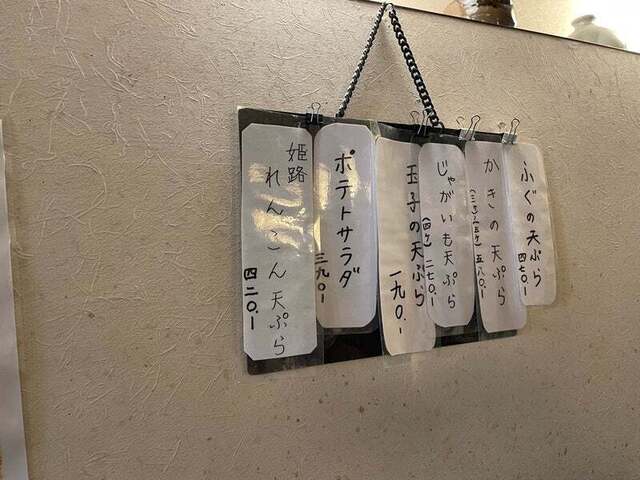 ふぐの天ぷら
四七〇.ー
かきの天ぷら
五八〇.ー
じゃがいも天ぷら
(四ケ) 二七〇.ー
玉子の天ぷら
一九〇.ー
ポテトサラダ
三九〇ー
姫路
れんこん天ぷら
四二〇.ー